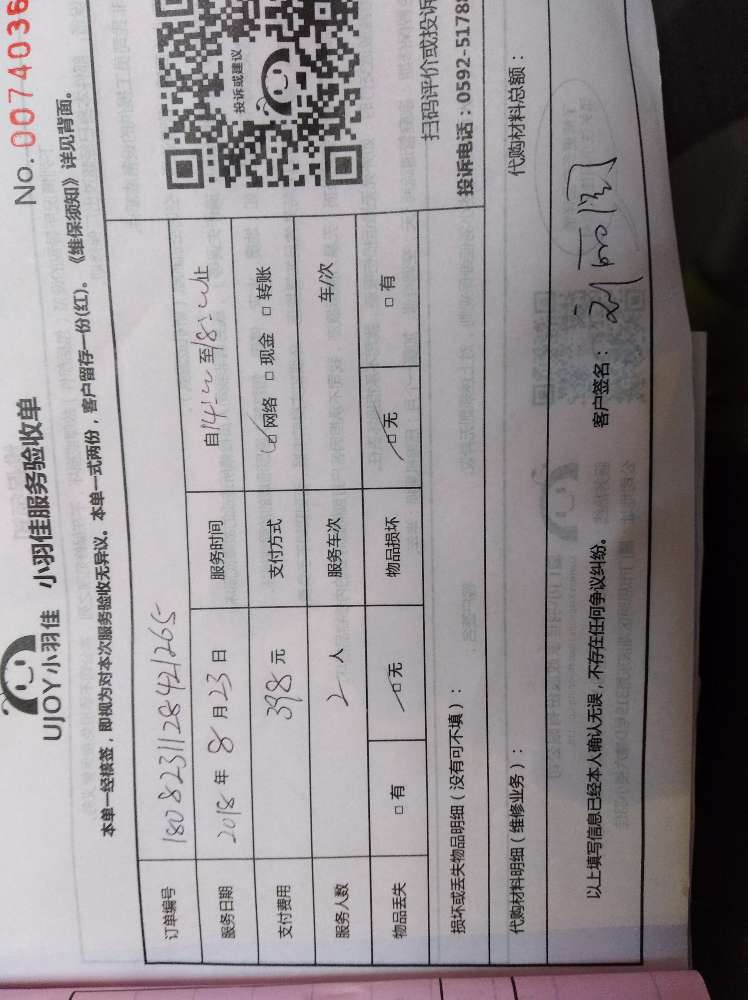 UJOY小羽佳 小羽佳服务验收单
No. 0074036
本单一经核签，即视为对本次服务验收无异议。本单一式两份，客户留存一份(红)。《维保须知》详见背面。
订单编号 18082311284 21265
服务日期 2018 年 8 月 23 日 服务时间 自14:00 至18:00止
支付费用 398 元 支付方式 ☑网络 □现金 □转账
服务人数 2 人 服务车次 车/次
物品丢失 □有 ☑无 物品损坏 ☑无 □有
投诉或建议
扫码评价或投诉
投诉电话：0592-5178
损坏或丢失物品明细（没有可不填）：
代购材料明细（维修业务）： 代购材料总额：
以上填写信息已经本人确认无误，不存在任何争议纠纷。 客户签名：